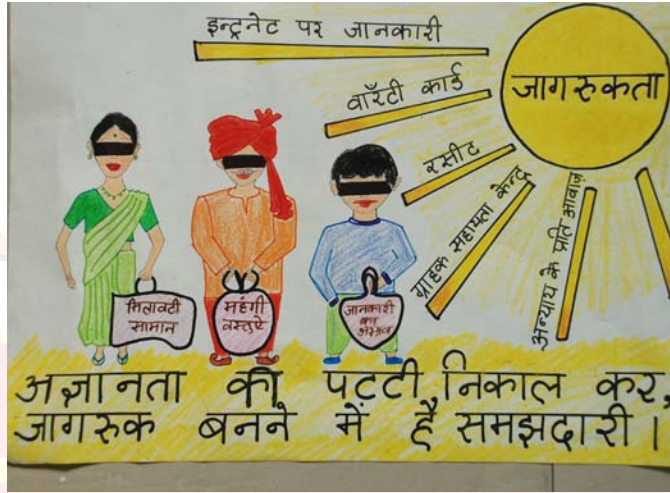 इन्ट्रनेट पर जानकारी
वॉरंटी कार्ड
रसीट
ग्राहक सहायता केन्द्र
अन्याय के प्रति आवाज़
जागरुकता
मिलावटी
सामान
महंगी
वस्तुऐ
जानकारी
का
अभाव
अज्ञानता की पट्टी निकाल कर,
जागरुक बनने में है समझदारी।